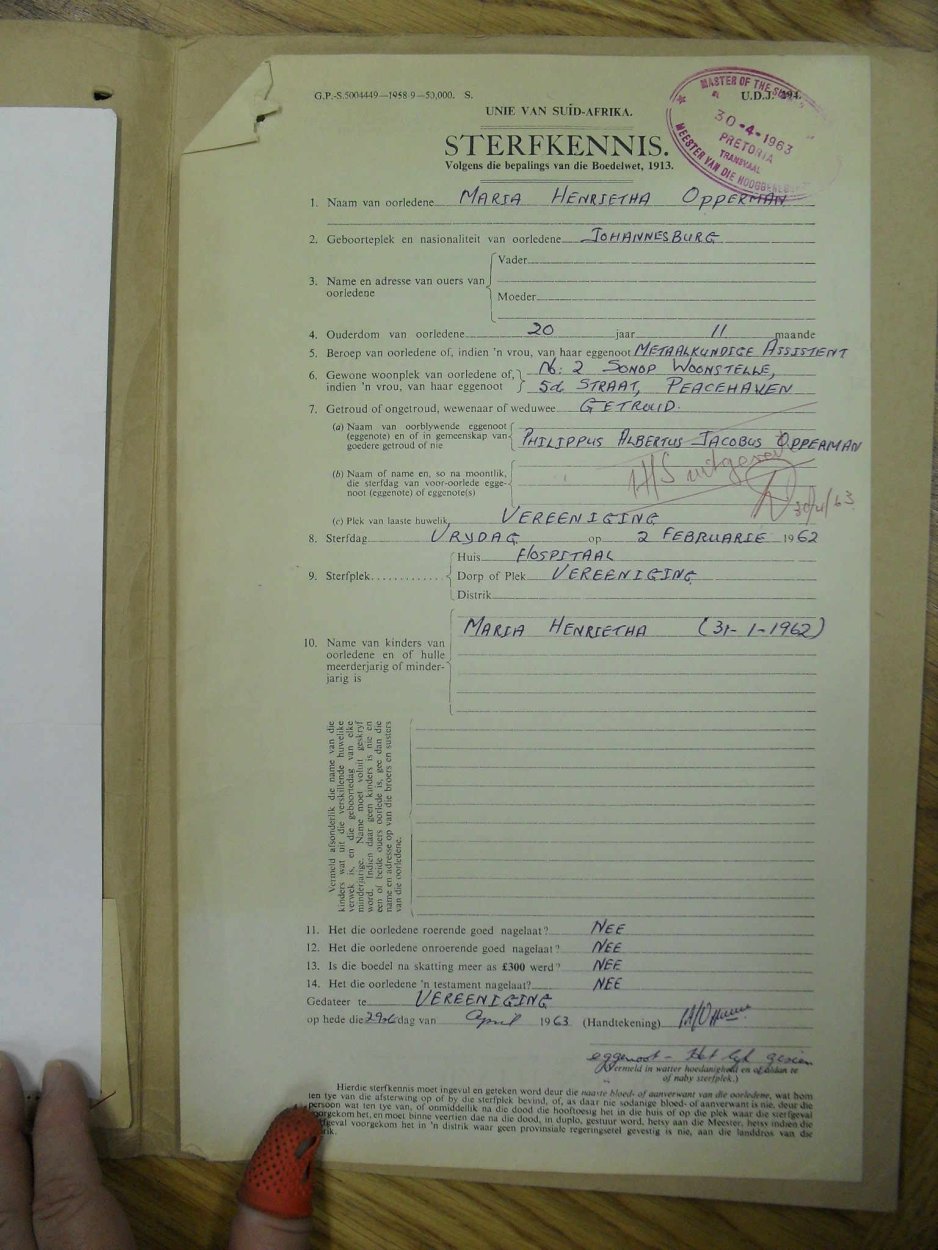 G.P.-S.5004449—1958-9—50,000. S.
U.D.J.
MASTER OF THE
30-4-1963
PRETORIA
TRANSVAAL
MEESTER VAN DIE HOOGGEREGSHOF
UNIE VAN SUID-AFRIKA.
STERFKENNIS.
Volgens die bepalings van die Boedelwet, 1913.
1. Naam van oorledene MARIA HENRIETHA OPPERMAN
2. Geboorteplek en nasionaliteit van oorledene JOHANNESBURG
3. Name en adresse van ouers van oorledene
Vader
Moeder
4. Ouderdom van oorledene 20 jaar 11 maande
5. Beroep van oorledene of, indien 'n vrou, van haar eggenoot METAALKUNDIGE ASSISTENT
6. Gewone woonplek van oorledene of, No: 2 SONOP WOONSTELLE,
indien 'n vrou, van haar eggenoot STRAAT, PEACEHAVEN
7. Getroud of ongetroud, wewenaar of weduwee GETROUD.
(a) Naam van oorblywende eggenoot
(eggenote) en of in gemeenskap van
goedere getroud of nie
PHILIPPUS ALBERTUS JACOBUS OPPERMAN
(b) Naam of name en, so na moontlik,
die sterfdag van voor-oorlede egge-
noot (eggenote) of eggenote(s)
uitgereik
30/4/63
(c) Plek van laaste huwelik VEREENIGING
8. Sterfdag VRYDAG op 2 FEBRUARIE 1962
9. Sterfplek
Huis HOSPITAAL
Dorp of Plek VEREENIGING
Distrik
MARIA HENRIETHA (31-1-1962)
10. Name van kinders van
oorledene en of hulle
meerderjarig of minder-
jarig is
Vermeld afsonderlik die name van die
kinders wat uit die verskillende huwelike
verwek is, en die geboortedag van elke
minderjarige. Name moet voluit geskryf
word. Indien daar geen kinders is nie en
een of beide ouers oorlede is, gee dan die
name en adresse op van die broers en susters
van die oorledene.
11. Het die oorledene roerende goed nagelaat? NEE
12. Het die oorledene onroerende goed nagelaat? NEE
13. Is die boedel na skatting meer as £300 werd? NEE
14. Het die oorledene 'n testament nagelaat? NEE
Gedateer te VEREENIGING
op hede die 29ste dag van April 1963 (Handtekening)
eggenoot - Het lyk gesien
(Vermeld in watter hoedanigheid en of aldan te
of naby sterfplek.)
Hierdie sterfkennis moet ingevul en geteken word deur die naaste bloed- of aanverwant van die oorledene, wat hom
ten tye van die afsterwing op of by die sterfplek bevind, of, as daar nie sodanige bloed- of aanverwant is nie, deur die
persoon wat ten tye van, of onmiddellik na die dood die hooftoesig het in die huis of op die plek waar die sterfgeval
voorgekom het, en moet binne veertien dae na die dood, in duplo, gestuur word, hetsy aan die Meester, hetsy indien die
sterfgeval voorgekom het in 'n distrik waar geen provinsiale regeringsetel gevestig is nie, aan die landdros van die